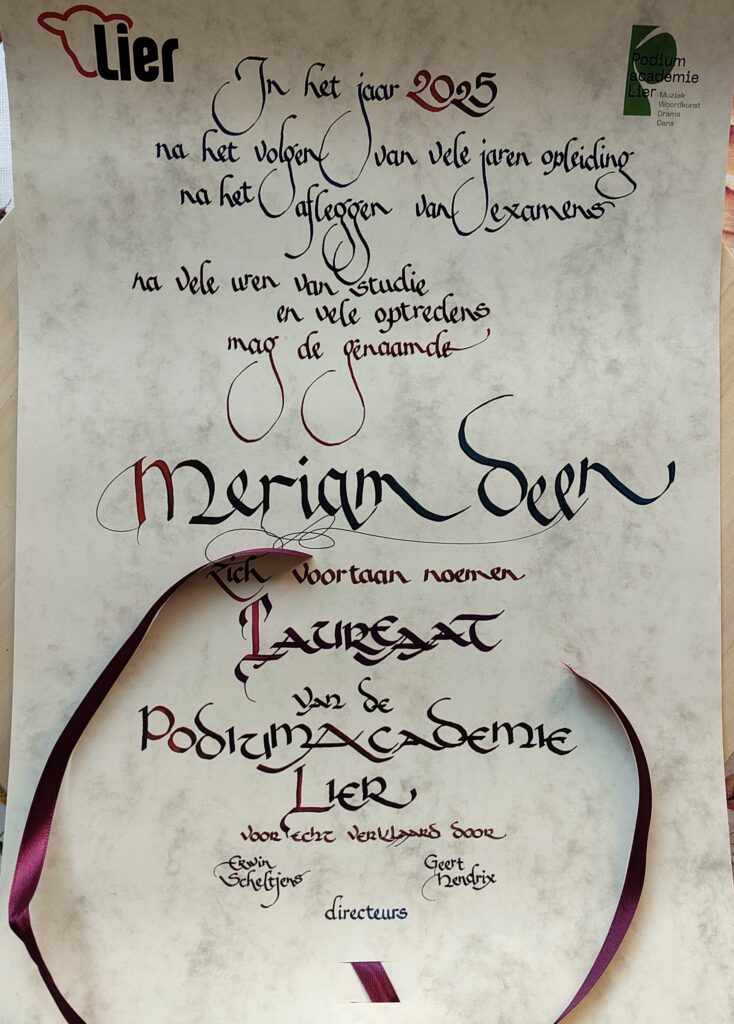 Lier
Podium
académie
Lier Muziek
Woordkunst
Drama
Dans
In het jaar 2025
na het volgen van vele jaren opleiding
na het afleggen van examens
na vele uren van studie
en vele optredens
mag de genaamde
Meriam Deen
zich voortaan noemen
Laureaat
van de
PodiumAcademie
Lier
voor echt verklaard door
Erwin
Scheltjens
Geert
Hendrix
directeurs